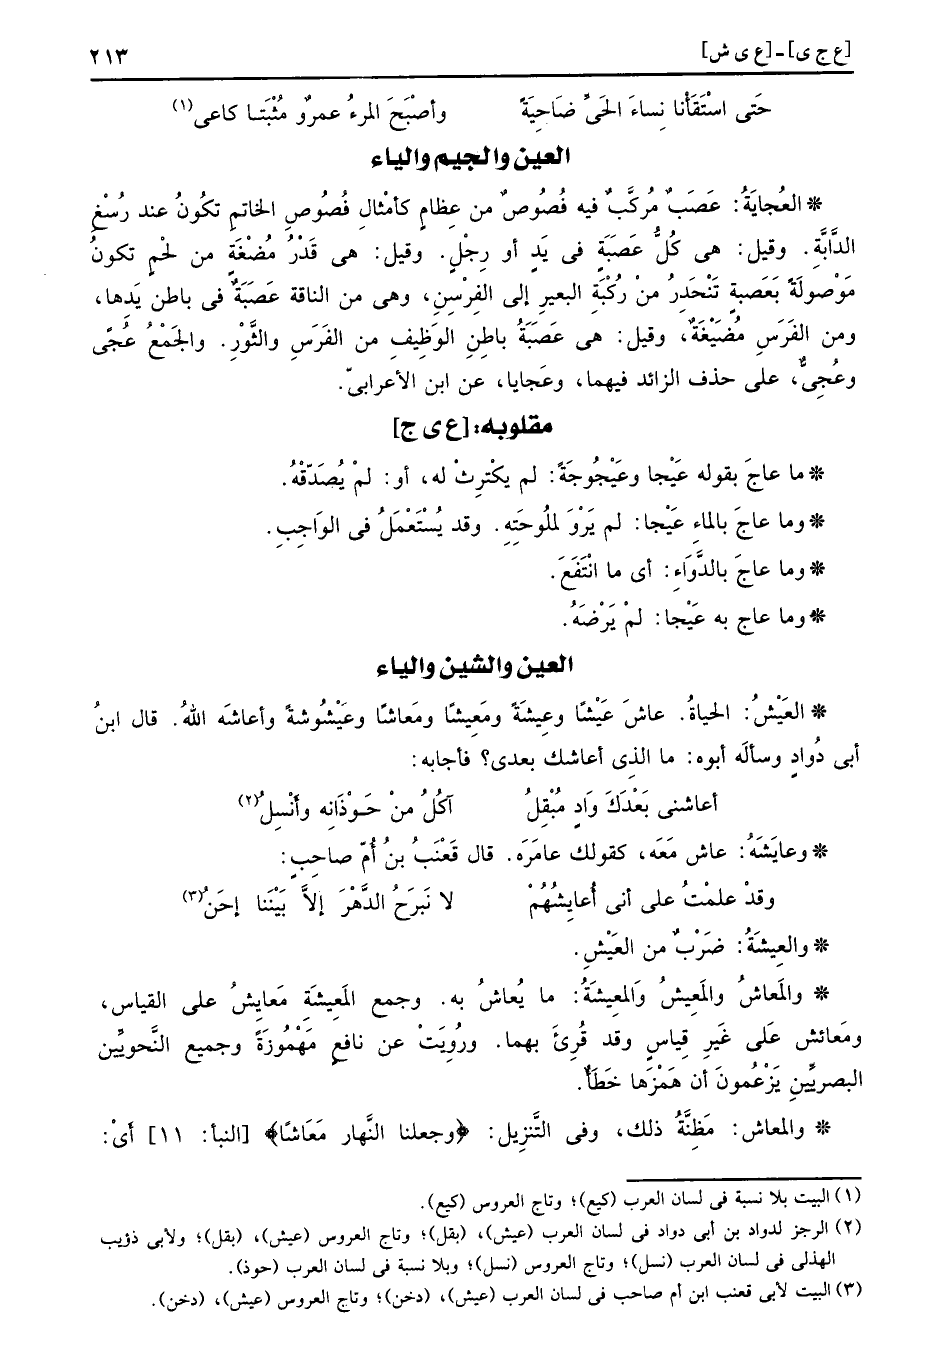 [ع ج ى] - [ع ى ش] ٢١٣
حَتى اسْتَقَأْنا نِساءَ الحَىِّ ضَاحِيَةً وأصْبَحَ المرءُ عمروٌ مُثْبَتـا كاعى(١)
العين والجيم والياء
* العُجايَةُ: عَصَبٌ مُركَّبٌ فيه فُصُوصٌ من عِظامٍ كأمْثالِ فُصُوصِ الخاتمِ تكُونُ عند رُسْغِ
الدَّابَّةِ. وقيل: هى كُلُّ عَصَبَةٍ فى يَدٍ أو رِجْلٍ. وقيل: هى قَدْرُ مُضْغَةٍ من لحْمٍ تكونُ
مَوْصُولَةً بعَصَبةٍ تَنْحَدِرُ منْ رُكْبَةِ البعيرِ إلى الفِرْسِنِ، وهى من الناقة عَصَبَةٌ فى باطن يَدها،
ومن الفَرَسِ مُضَيْغَةٌ، وقيل: هى عَصَبَةُ باطِنِ الوَظِيفِ من الفَرَسِ والثَّوْرِ. والجَمْعُ عُجًى
وعُجِىٌّ، على حذف الزائد فيهما، وعَجايا، عن ابن الأعرابىّ.
مقلوبه: [ع ى ج]
* ما عاجَ بقوله عَيْجا وعَيْجُوجَةً: لم يكْترِثْ له، أو: لمْ يُصَدّقْهُ.
* وما عاجَ بالماءِ عَيْجا: لم يَرْوَ لملُوحَتِهِ. وقد يُسْتَعْمَلُ فى الوَاجِبِ.
* وما عاجَ بالدَّوَاءِ: أى ما انْتَفَعَ.
* وما عاج به عَيْجا: لمْ يَرْضَهُ.
العين والشين والياء
* العَيْشُ: الحياةُ. عاشَ عَيْشًا وعِيشَةً ومَعِيشًا ومَعاشًا وعَيْشُوشةً وأعاشَه اللهُ. قال ابنُ
أبى دُوادٍ وسألَه أبوه: ما الذى أعاشك بعدى؟ فأجابه:
أعاشنى بَعْدَكَ وَادٍ مُبْقِلُ آكُلُ منْ حَـوْذَانِه وأنْسِلُ(٢)
* وعايَشَهُ: عاش مَعَه، كقولك عامَرَه. قال قَعْنَبُ بنُ أُمّ صاحبٍ:
وقدْ علمْتُ على أنى أُعايِشُهُمْ لا نَبرَحُ الدَّهْرَ إلاَّ بَيْنَنا إحَنُ(٣)
* والعِيشَةُ: ضَرْبٌ من العَيْشِ.
* والمَعاشُ والمَعِيشُ وَالمعِيشَةُ: ما يُعاشُ به. وجمع المَعِيشَةِ مَعايشُ على القياس،
ومَعائش عَلى غَيرِ قياسٍ وقد قُرِئَ بهما. ورُوِيَتْ عن نافعٍ مَهْمُوزَةً وجميع النَّحويِّين
البصريِّين يَزْعُمونَ أن هَمْزَها خَطَأٌ.
* والمعاش: مَظِنَّةُ ذلك، وفى التَّنزيل: ﴿وجعلنا النَّهار مَعَاشًا﴾ [النبأ: ١١] أىْ:
(١) البيت بلا نسبة فى لسان العرب (كيع)؛ وتاج العروس (كيع).
(٢) الرجز لدواد بن أبى دواد فى لسان العرب (عيش)، (بقل)؛ وتاج العروس (عيش)، (بقل)؛ ولأبى ذؤيب
الهذلى فى لسان العرب (نسل)؛ وتاج العروس (نسل)؛ وبلا نسبة فى لسان العرب (حوذ).
(٣) البيت لأبى قعنب ابن أم صاحب فى لسان العرب (عيش)، (دخن)؛ وتاج العروس (عيش)، (دخن).